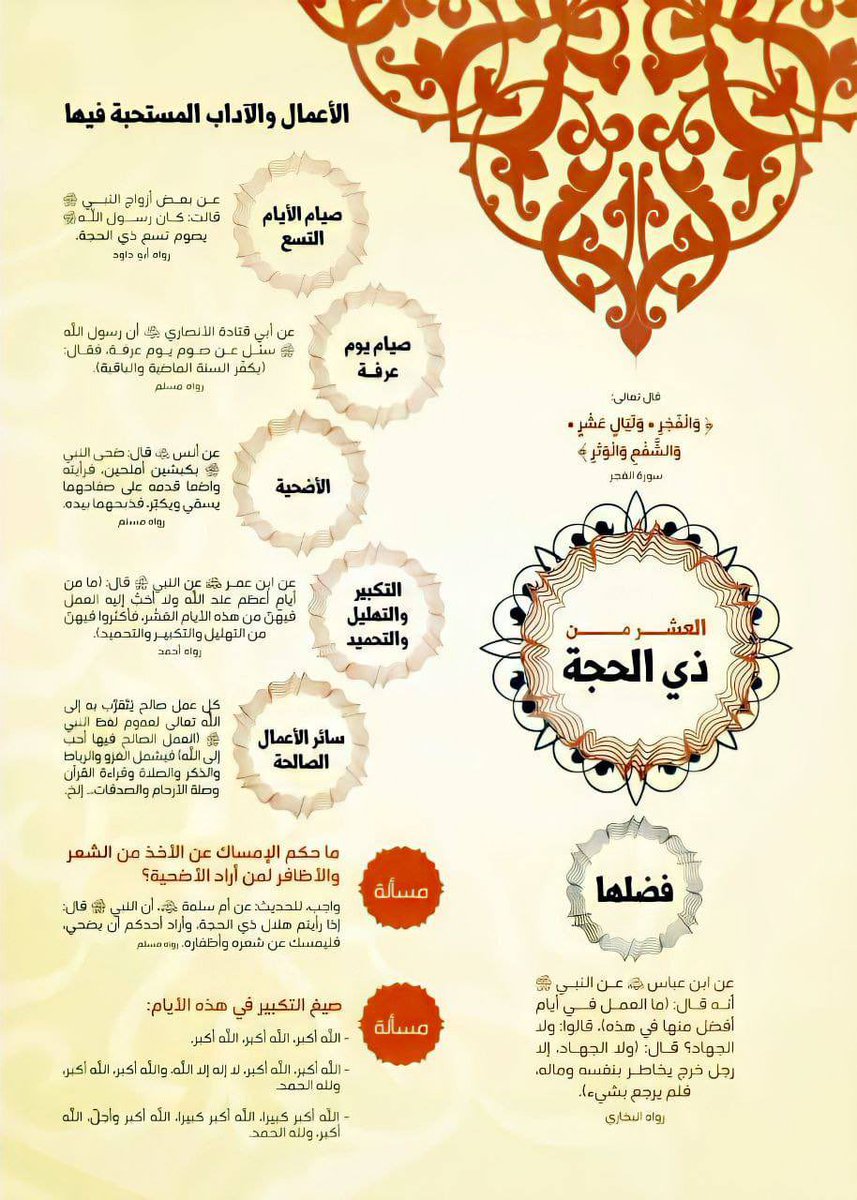 قال تعالى:
﴿ وَالْفَجْرِ • وَلَيَالٍ عَشْرٍ •
وَالشَّفْعِ وَالْوَتْرِ ﴾
سورة الفجر
العشر من
ذي الحجة
فضلها
عن ابن عباس ﷺ عن النبي ﷺ
أنه قال: (ما العمل في أيام
أفضل منها في هذه)، قالوا: ولا
الجهاد؟ قال: (ولا الجهاد، إلا
رجل خرج يخاطر بنفسه وماله،
فلم يرجع بشيء).
رواه البخاري
الأعمال والآداب المستحبة فيها
صيام الأيام
التسع
عن بعض أزواج النبي ﷺ
قالت: كان رسول الله ﷺ
يصوم تسع ذي الحجة.
رواه أبو داود
صيام يوم
عرفة
عن أبي قتادة الأنصاري أن رسول الله
ﷺ سئل عن صوم يوم عرفة، فقال:
(يكفر السنة الماضية والباقية).
رواه مسلم
الأضحية
عن أنس قال: ضحى النبي
ﷺ بكبشين أملحين، فرأيته
واضعا قدمه على صفاحهما
يسمي ويكبر، فذبحهما بيده.
رواه مسلم
التكبير
والتهليل
والتحميد
عن ابن عمر عن النبي ﷺ قال: (ما من
أيام أعظم عند الله ولا أحبُّ إليه العمل
فيهنّ من هذه الأيام العشر، فأكثروا فيهنّ
من التهليل والتكبير والتحميد).
رواه أحمد
سائر الأعمال
الصالحة
كل عمل صالح يُتقرَّب به إلى
الله تعالى لعموم لفظ النبي
ﷺ (العمل الصالح فيها أحب
إلى الله) فيشمل الغزو والرباط
والذكر والصلاة وقراءة القرآن
وصلة الأرحام والصدقات... إلخ.
مسألة
ما حكم الإمساك عن الأخذ من الشعر
والأظافر لمن أراد الأضحية؟
واجب، للحديث: عن أم سلمة، أن النبي ﷺ قال:
إذا رأيتم هلال ذي الحجة، وأراد أحدكم أن يضحي،
فليمسك عن شعره وأظفاره. رواه مسلم
مسألة
صيغ التكبير في هذه الأيام:
- الله أكبر، الله أكبر، الله أكبر.
- الله أكبر، الله أكبر، لا إله إلا الله، والله أكبر، الله أكبر،
ولله الحمد.
- الله أكبر كبيرا، الله أكبر كبيرا، الله أكبر وأجلّ، الله
أكبر، ولله الحمد.